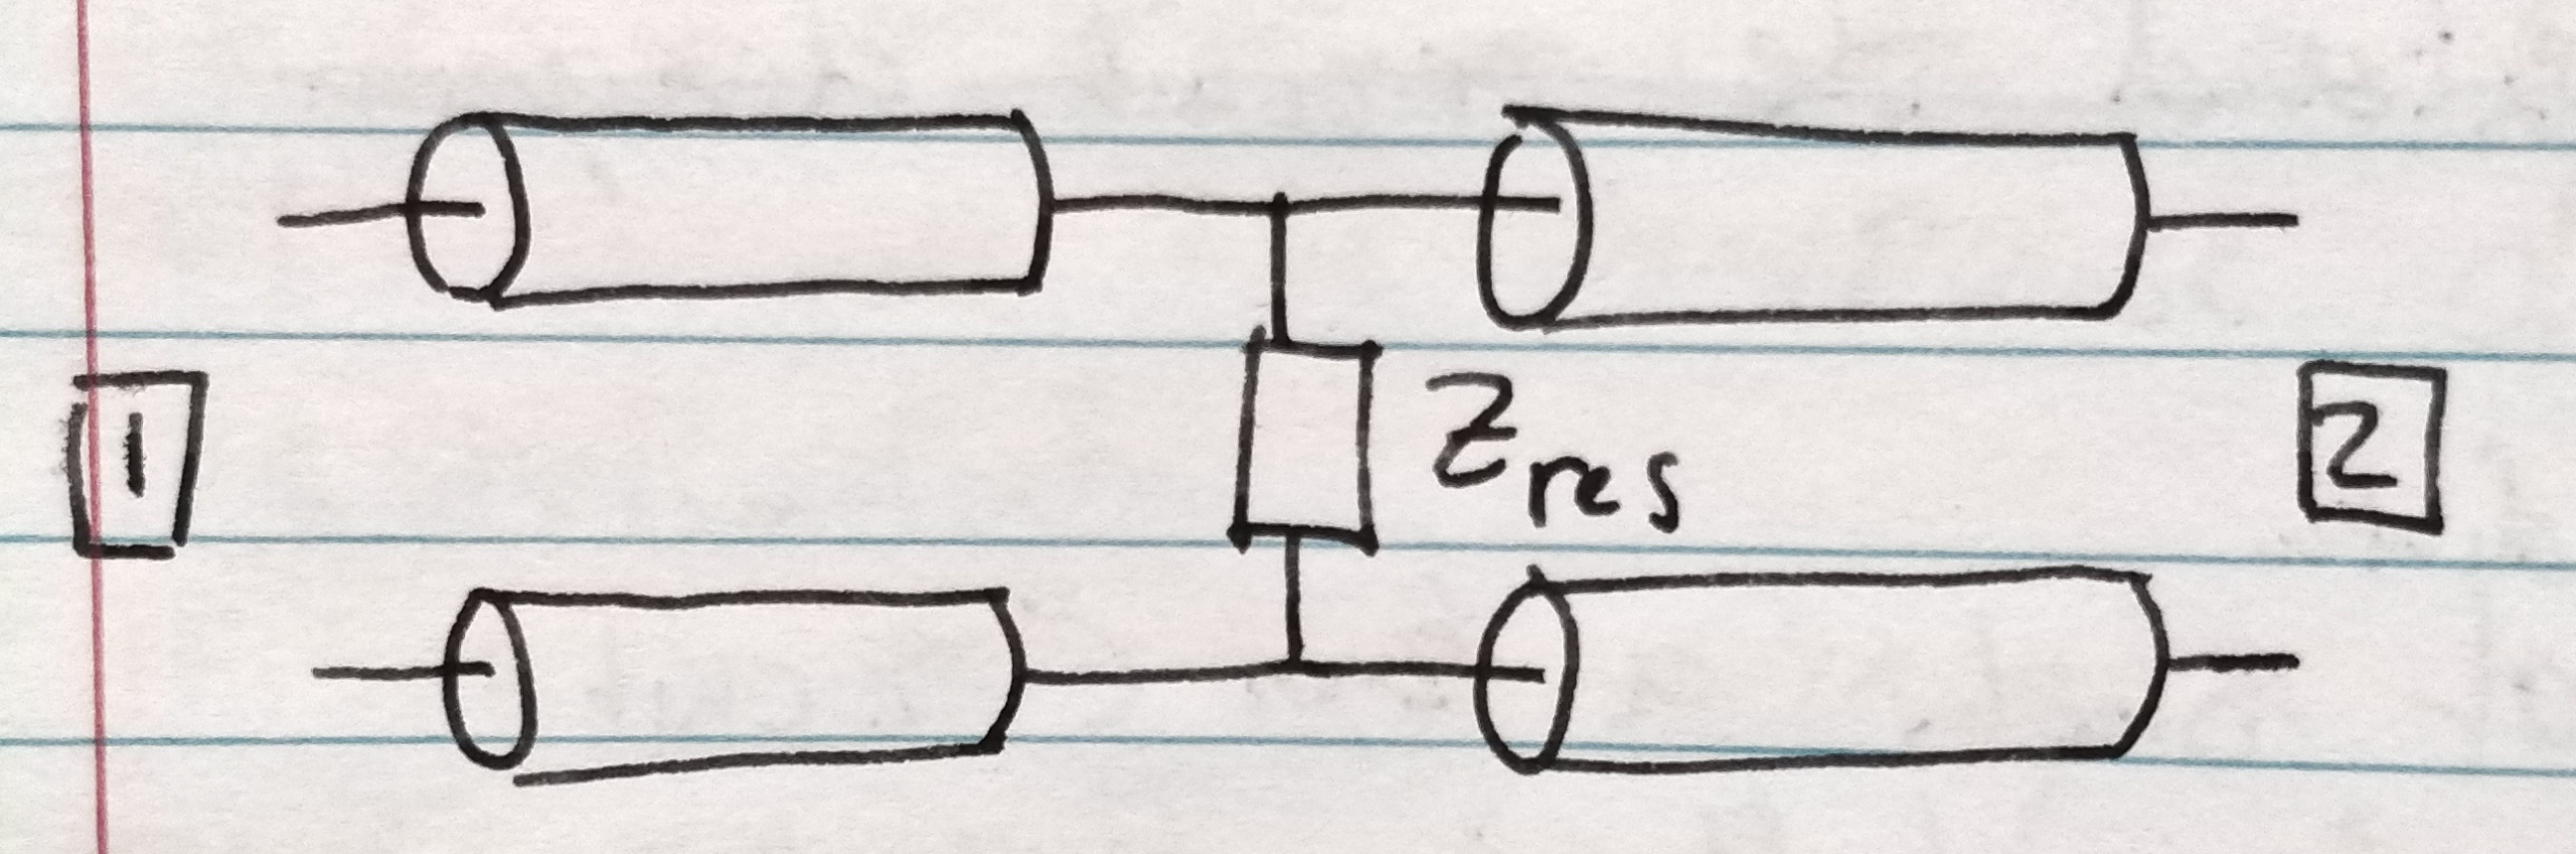 1
Zres
2